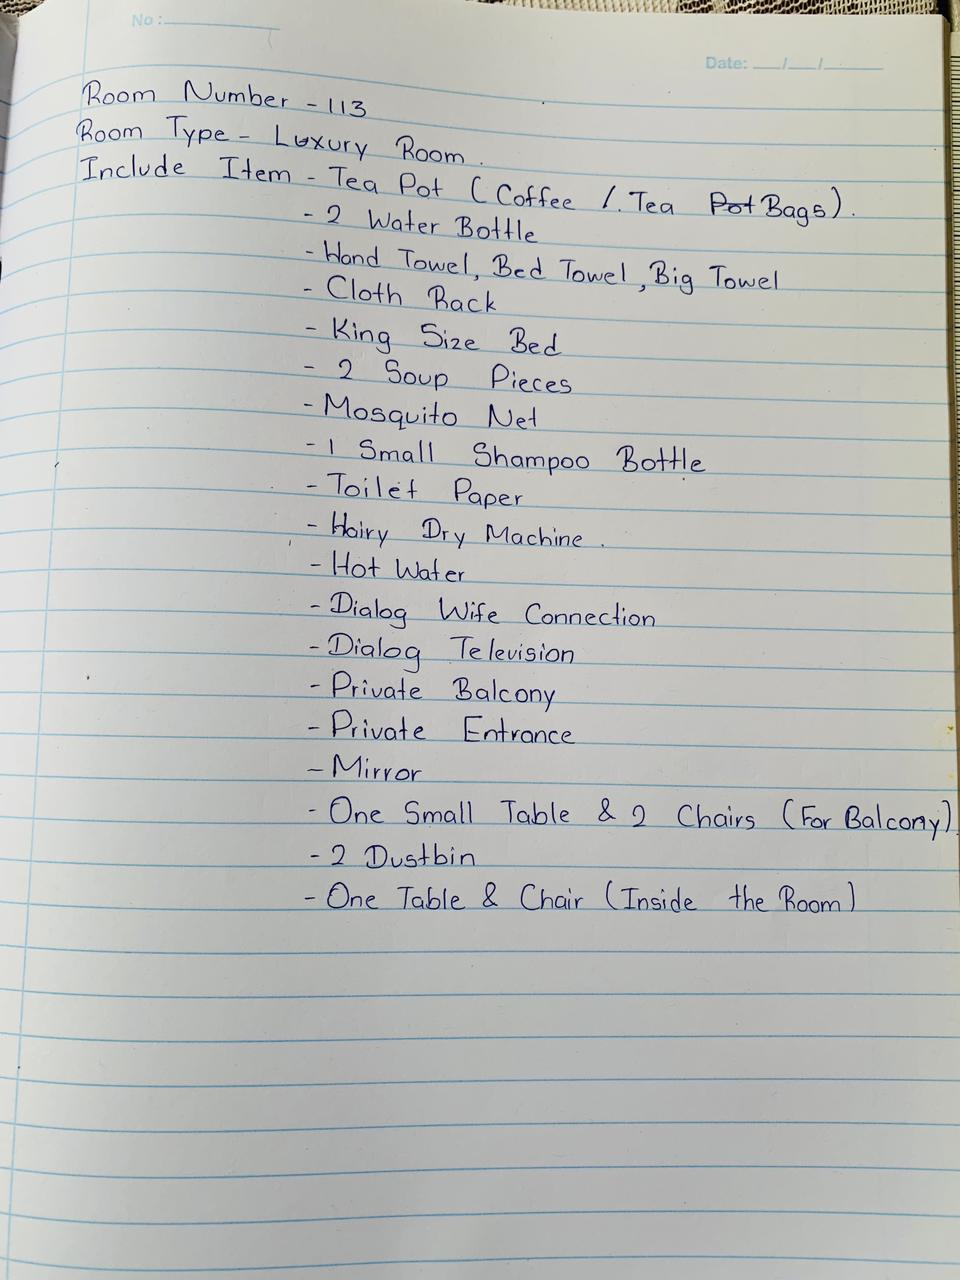 No :
Date: __/__/____
Room Number - 113
Room Type - Luxury Room.
Include Item - Tea Pot (Coffee /. Tea Pot Bags).
- 2 Water Bottle
- Hand Towel, Bed Towel, Big Towel
- Cloth Rack
- King Size Bed
- 2 Soup Pieces
- Mosquito Net
- 1 Small Shampoo Bottle
- Toilet Paper
- Hairy Dry Machine.
- Hot Water
- Dialog Wife Connection
- Dialog Television
- Private Balcony
- Private Entrance
- Mirror
- One Small Table & 2 Chairs (For Balcony)
- 2 Dustbin
- One Table & Chair (Inside the Room)